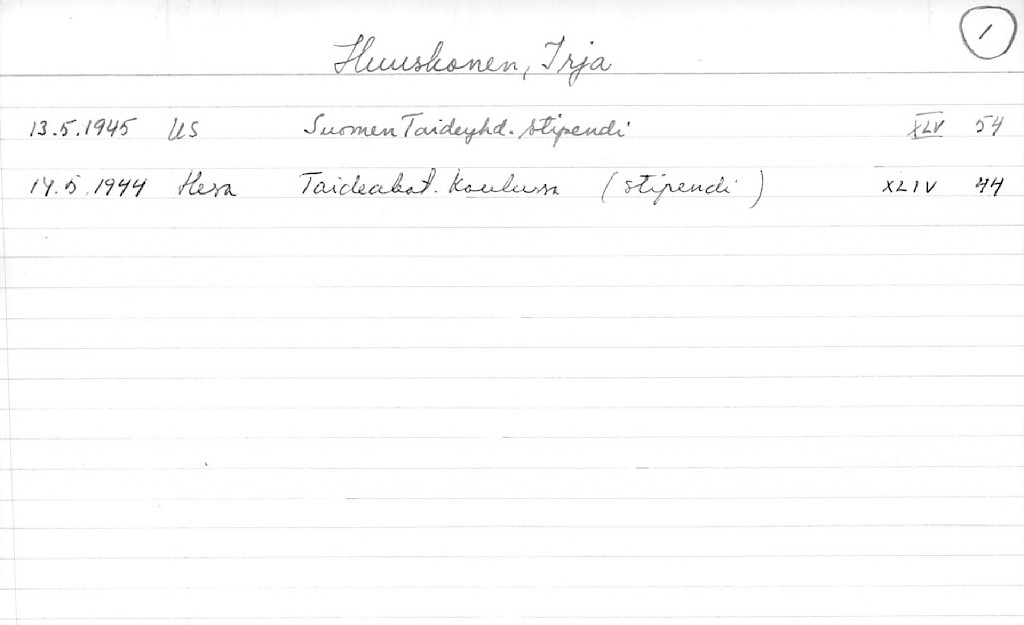 1
Huuskonen, Irja
13.5.1945 US Suomen Taideyhd. stipendi XLV 54
14.5.1944 Hesa Taideakat. Koulussa (stipendi) XLIV 44